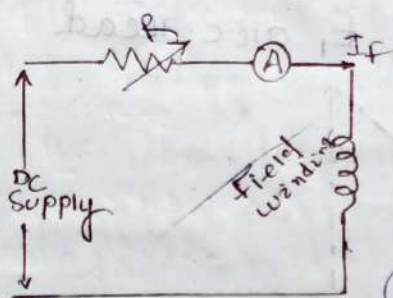 R
A
IF
DC
Supply
field
winding